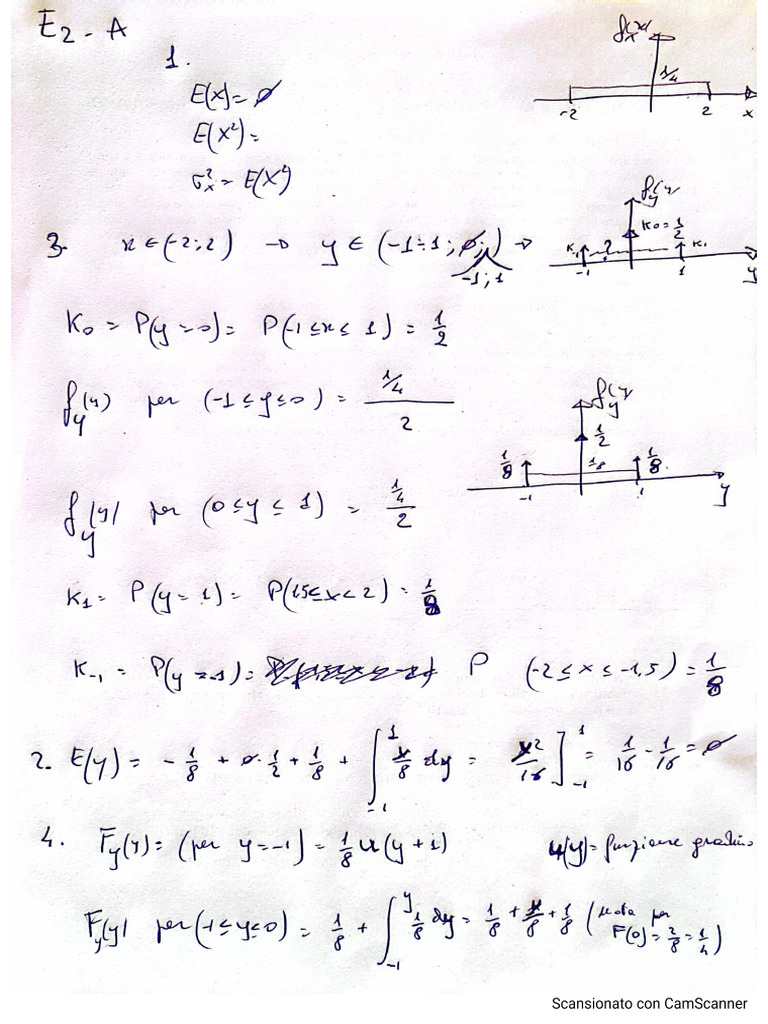 E2 - A
1.
E(x) = ∅
E(x²) =
σx² = E(x²)
fx(x)
1/4
-2 2 x
3. x ∈ (-2; 2) → y ∈ (-1÷1; ∅; ) →
-1; 1
fy(y
K0 = 1/2
K-1 ? K1
-1 1 y
K0 = P(y=0) = P(-1 ≤ x ≤ 1) = 1/2
fy(y) per (-1 ≤ y ≤ 0) = 1/4 / 2
fy(y
1/2
1/8 1/8 1/8
-1 1 y
fy(y) per (0 ≤ y ≤ 1) = 1/4 / 2
K1 = P(y = 1) = P(1,5 ≤ x < 2) = 1/8
K-1 = P(y = -1) = P (-2 ≤ x ≤ -1,5) = 1/8
2. E(y) = -1/8 + ∅ · 1/2 + 1/8 + ∫_{-1}^{1} y/8 dy = y²/16 ]_{-1}^{1} = 1/16 - 1/16 = ∅
4. Fy(y) = (per y = -1) = 1/8 u(y + 1) u(y) = funzione gradino
Fy(y) per (-1 ≤ y ≤ 0) = 1/8 + ∫_{-1}^{y} 1/8 dy = 1/8 + y/8 + 1/8 ( per F(0) = 2/8 = 1/4 )
Scansionato con CamScanner